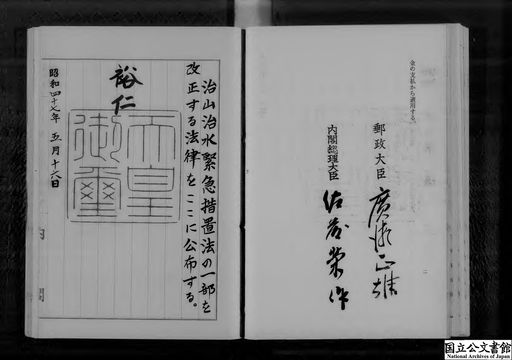 金の支払から適用する。
郵政大臣 廣瀬正雄
内閣総理大臣 佐藤榮作
治山治水緊急措置法の一部を
改正する法律をここに公布する。
裕仁
天皇
御璽
昭和四十七年五月十六日
国立公文書館
National Archives of Japan